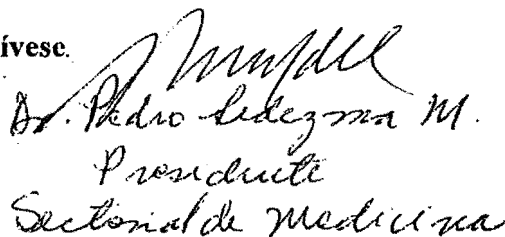 ívese.
Dr. Pedro Ledezma M.
Presidente
Sectorial de Medicina